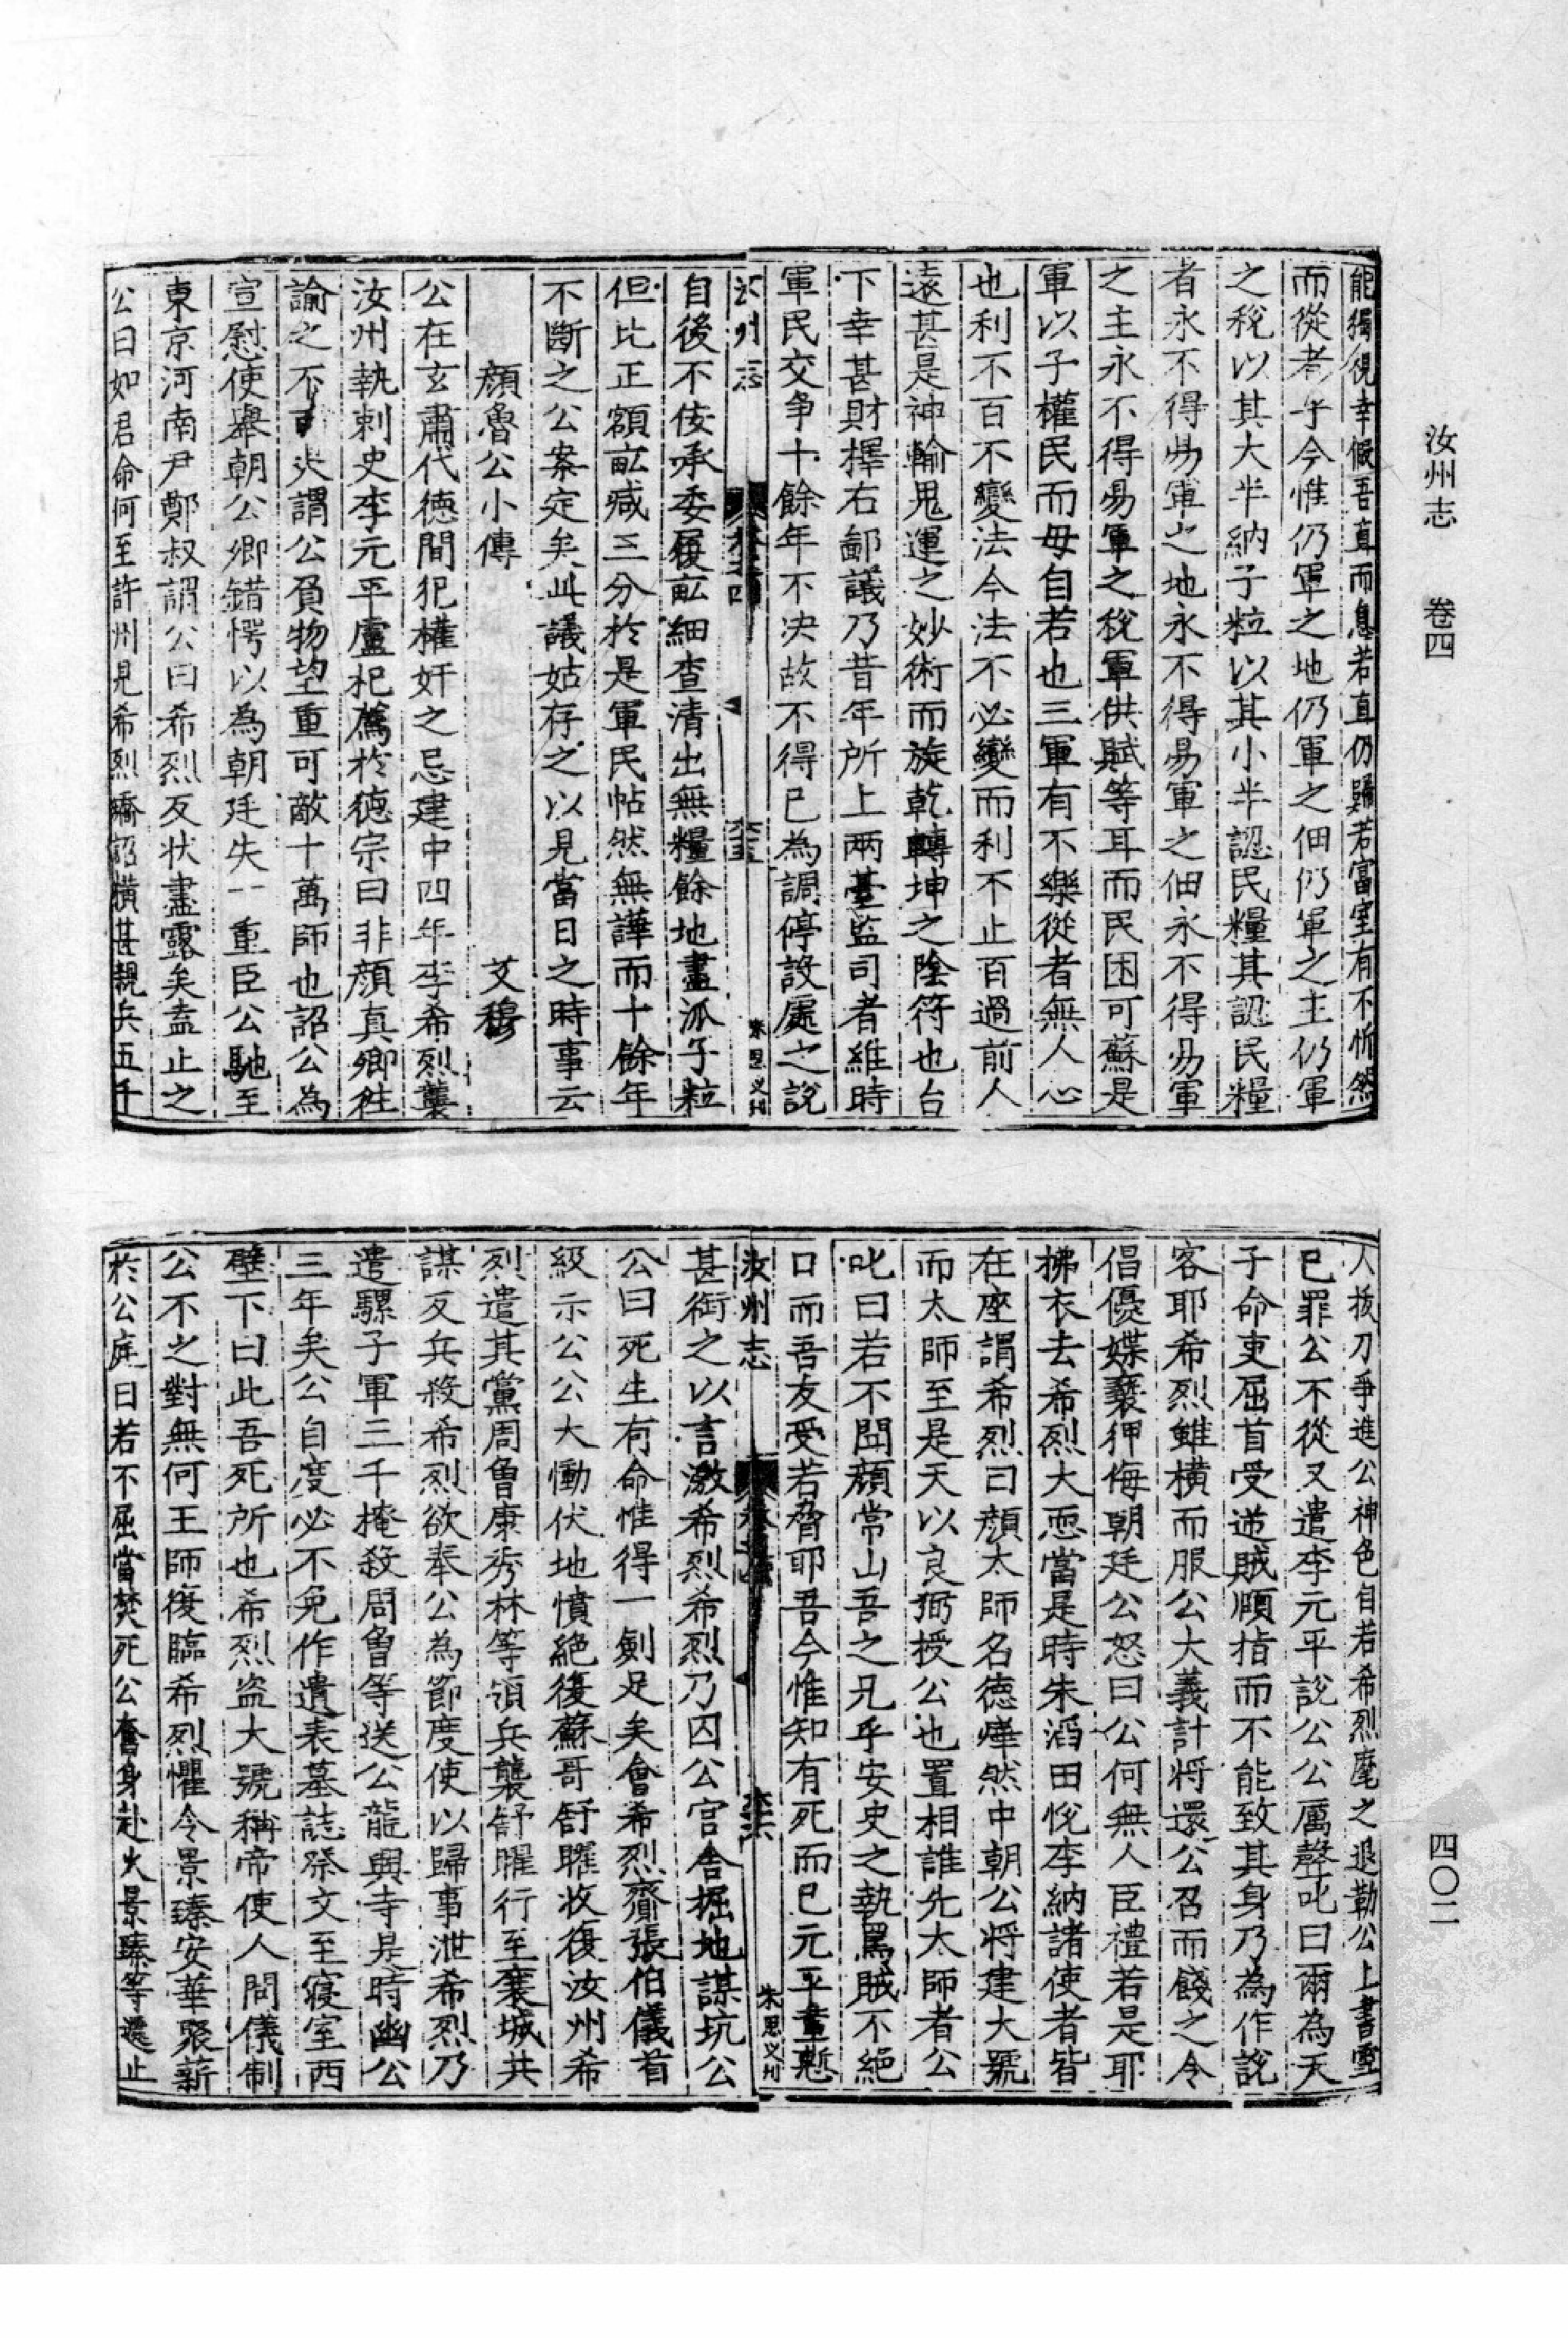 汝州志 卷四 四〇二
能獨視幸假吾真而息若直仍賜若富室有不忻然
而從者乎今惟仍軍之地仍軍之佃仍軍之主仍軍
之稅以其大半納子粒以其小半認民糧其認民糧
者永不得易軍之地永不得易軍之佃永不得易軍
之主永不得易軍之稅軍供賦等耳而民困可蘇是
軍以子權民而毋自若也三軍有不樂從者無人心
也利不百不變法今法不必變而利不止百過前人
遠甚是神輸鬼運之妙術而旋乾轉坤之陰符也台
下幸甚財擇右鄙議乃昔年所上兩臺監司者維時
軍民交争十餘年不决故不得已為調停設處之說
汝州志 卷之四 六十五 朱思义刊
自後不佞承委履畝細查清出無糧餘地盡派子粒
但比正額畝减三分於是軍民帖然無譁而十餘年
不斷之公案定矣此議姑存之以見當日之時事云
顏魯公小傳 艾穆
公在玄肅代德間犯權奸之忌建中四年李希烈襲
汝州執刺史李元平盧杞薦於德宗曰非顏真卿往
諭之不可夫謂公負物望重可敵十萬師也詔公為
宣慰使舉朝公卿錯愕以為朝廷失一重臣公馳至
東京河南尹鄭叔謂公曰希烈反狀盡露矣盍止之
公曰如君命何至許州見希烈矯詔橫甚親兵五千
人拔刀爭進公神色自若希烈麾之退勒公上書雪
已罪公不從又遣李元平說公公厲聲叱曰爾為天
子命吏屈首受逆賊順指而不能致其身乃為作說
客耶希烈雖橫而服公大義計將還公召而餞之令
倡優媟褻狎侮朝廷公怒曰公何無人臣禮若是耶
拂衣去希烈大恧當是時朱滔田悅李納諸使者皆
在座謂希烈曰顏太師名德煒然中朝公將建大號
而太師至是天以良弼授公也置相誰先太師者公
叱曰若不聞顏常山吾之兄乎安史之執罵賊不絕
口而吾友受若脅耶吾今惟知有死而已元平羞慙
汝州志 卷之四 六十六 朱思义刊
甚銜之以言激希烈希烈乃囚公官舍掘地謀坑公
公曰死生有命惟得一劍足矣會希烈齎張伯儀首
級示公公大慟伏地憤絕復蘇哥舒曜收復汝州希
烈遣其黨周魯康秀林等領兵襲舒曜行至襄城共
謀反兵殺希烈欲奉公為節度使以歸事泄希烈乃
遣騾子軍三千掩殺周魯等送公龍興寺是時幽公
三年矣公自度必不免作遺表墓誌祭文至寢室西
壁下曰此吾死所也希烈盜大號稱帝使人問儀制
公不之對無何王師復臨希烈懼令景臻安華聚薪
於公庭曰若不屈當焚死公奮身赴火景臻等遽止